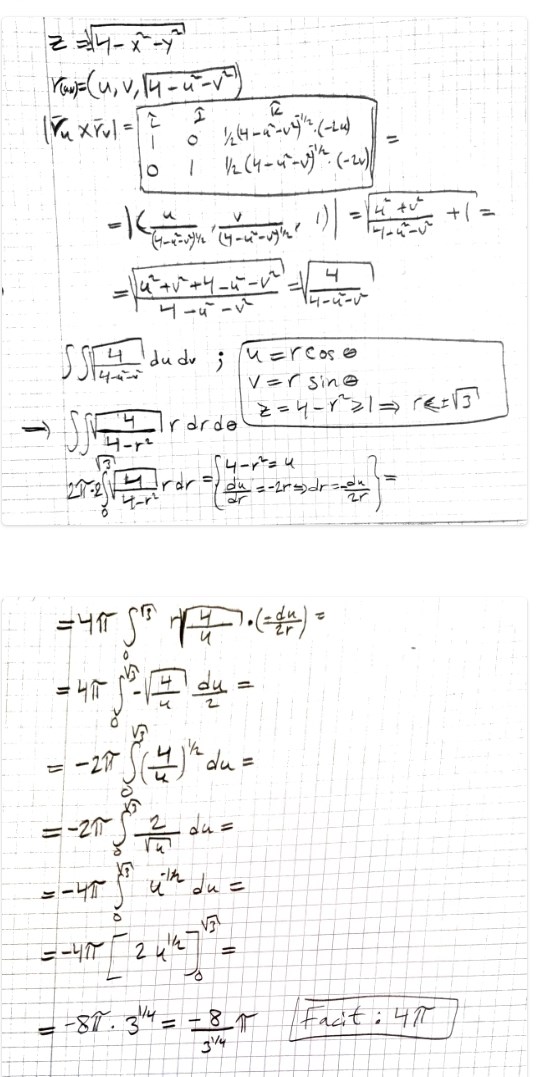 z = √(4-x²-y²)
r(u,v) = (u, v, √(4-u²-v²))
|r̄u × r̄v| = | î ĵ k̂ |
| 1 0 ½(4-u²-v²)^(-1/2)·(-2u) | =
| 0 1 ½(4-u²-v²)^(-1/2)·(-2v) |
= |( u/(4-u²-v²)^(1/2), v/(4-u²-v²)^(1/2), 1)| = √((u²+v²)/(4-u²-v²) + 1) =
= √((u²+v²+4-u²-v²)/(4-u²-v²)) = √(4/(4-u²-v²))
∫∫√(4/(4-u²-v²)) du dv ; u = r cos θ
v = r sin θ
z = 4-r² ≥ 1 ⇒ r ≤ ±√3
→ ∫∫√(4/(4-r²)) r dr dθ
2π·2∫₀^√3 √(4/(4-r²)) r dr = { 4-r² = u
du/dr = -2r ⇒ dr = -du/2r } =
= 4π ∫₀^√3 r√(4/u) · (-du/2r) =
= 4π ∫₀^√3 -√(4/u) du/2 =
= -2π ∫₀^√3 (4/u)^(1/2) du =
= -2π ∫₀^√3 2/√u du =
= -4π ∫₀^√3 u^(-1/2) du =
= -4π [2u^(1/2)]₀^√3 =
= -8π · 3^(1/4) = -8/3^(1/4) π Facit : 4π